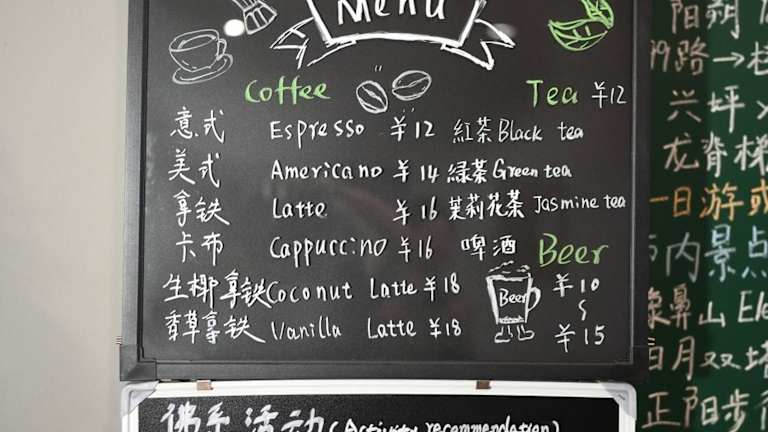 Menu
Coffee
Tea ¥12
意式 Espresso ¥12 紅茶 Black tea
美式 Americano ¥14 緑茶 Green tea
拿铁 Latte ¥16 茉莉花茶 Jasmine tea
卡布 Cappuccino ¥16 啤酒 Beer
生椰拿铁 Coconut Latte ¥18
香草拿铁 Vanilla Latte ¥18
Beer
¥10
~
¥15
佛手活动 (Activity recommendation)
阳朔
99路→
兴坪
龙脊梯
一日游或
内景点
象鼻山 Ele
日月双塔
正阳步行